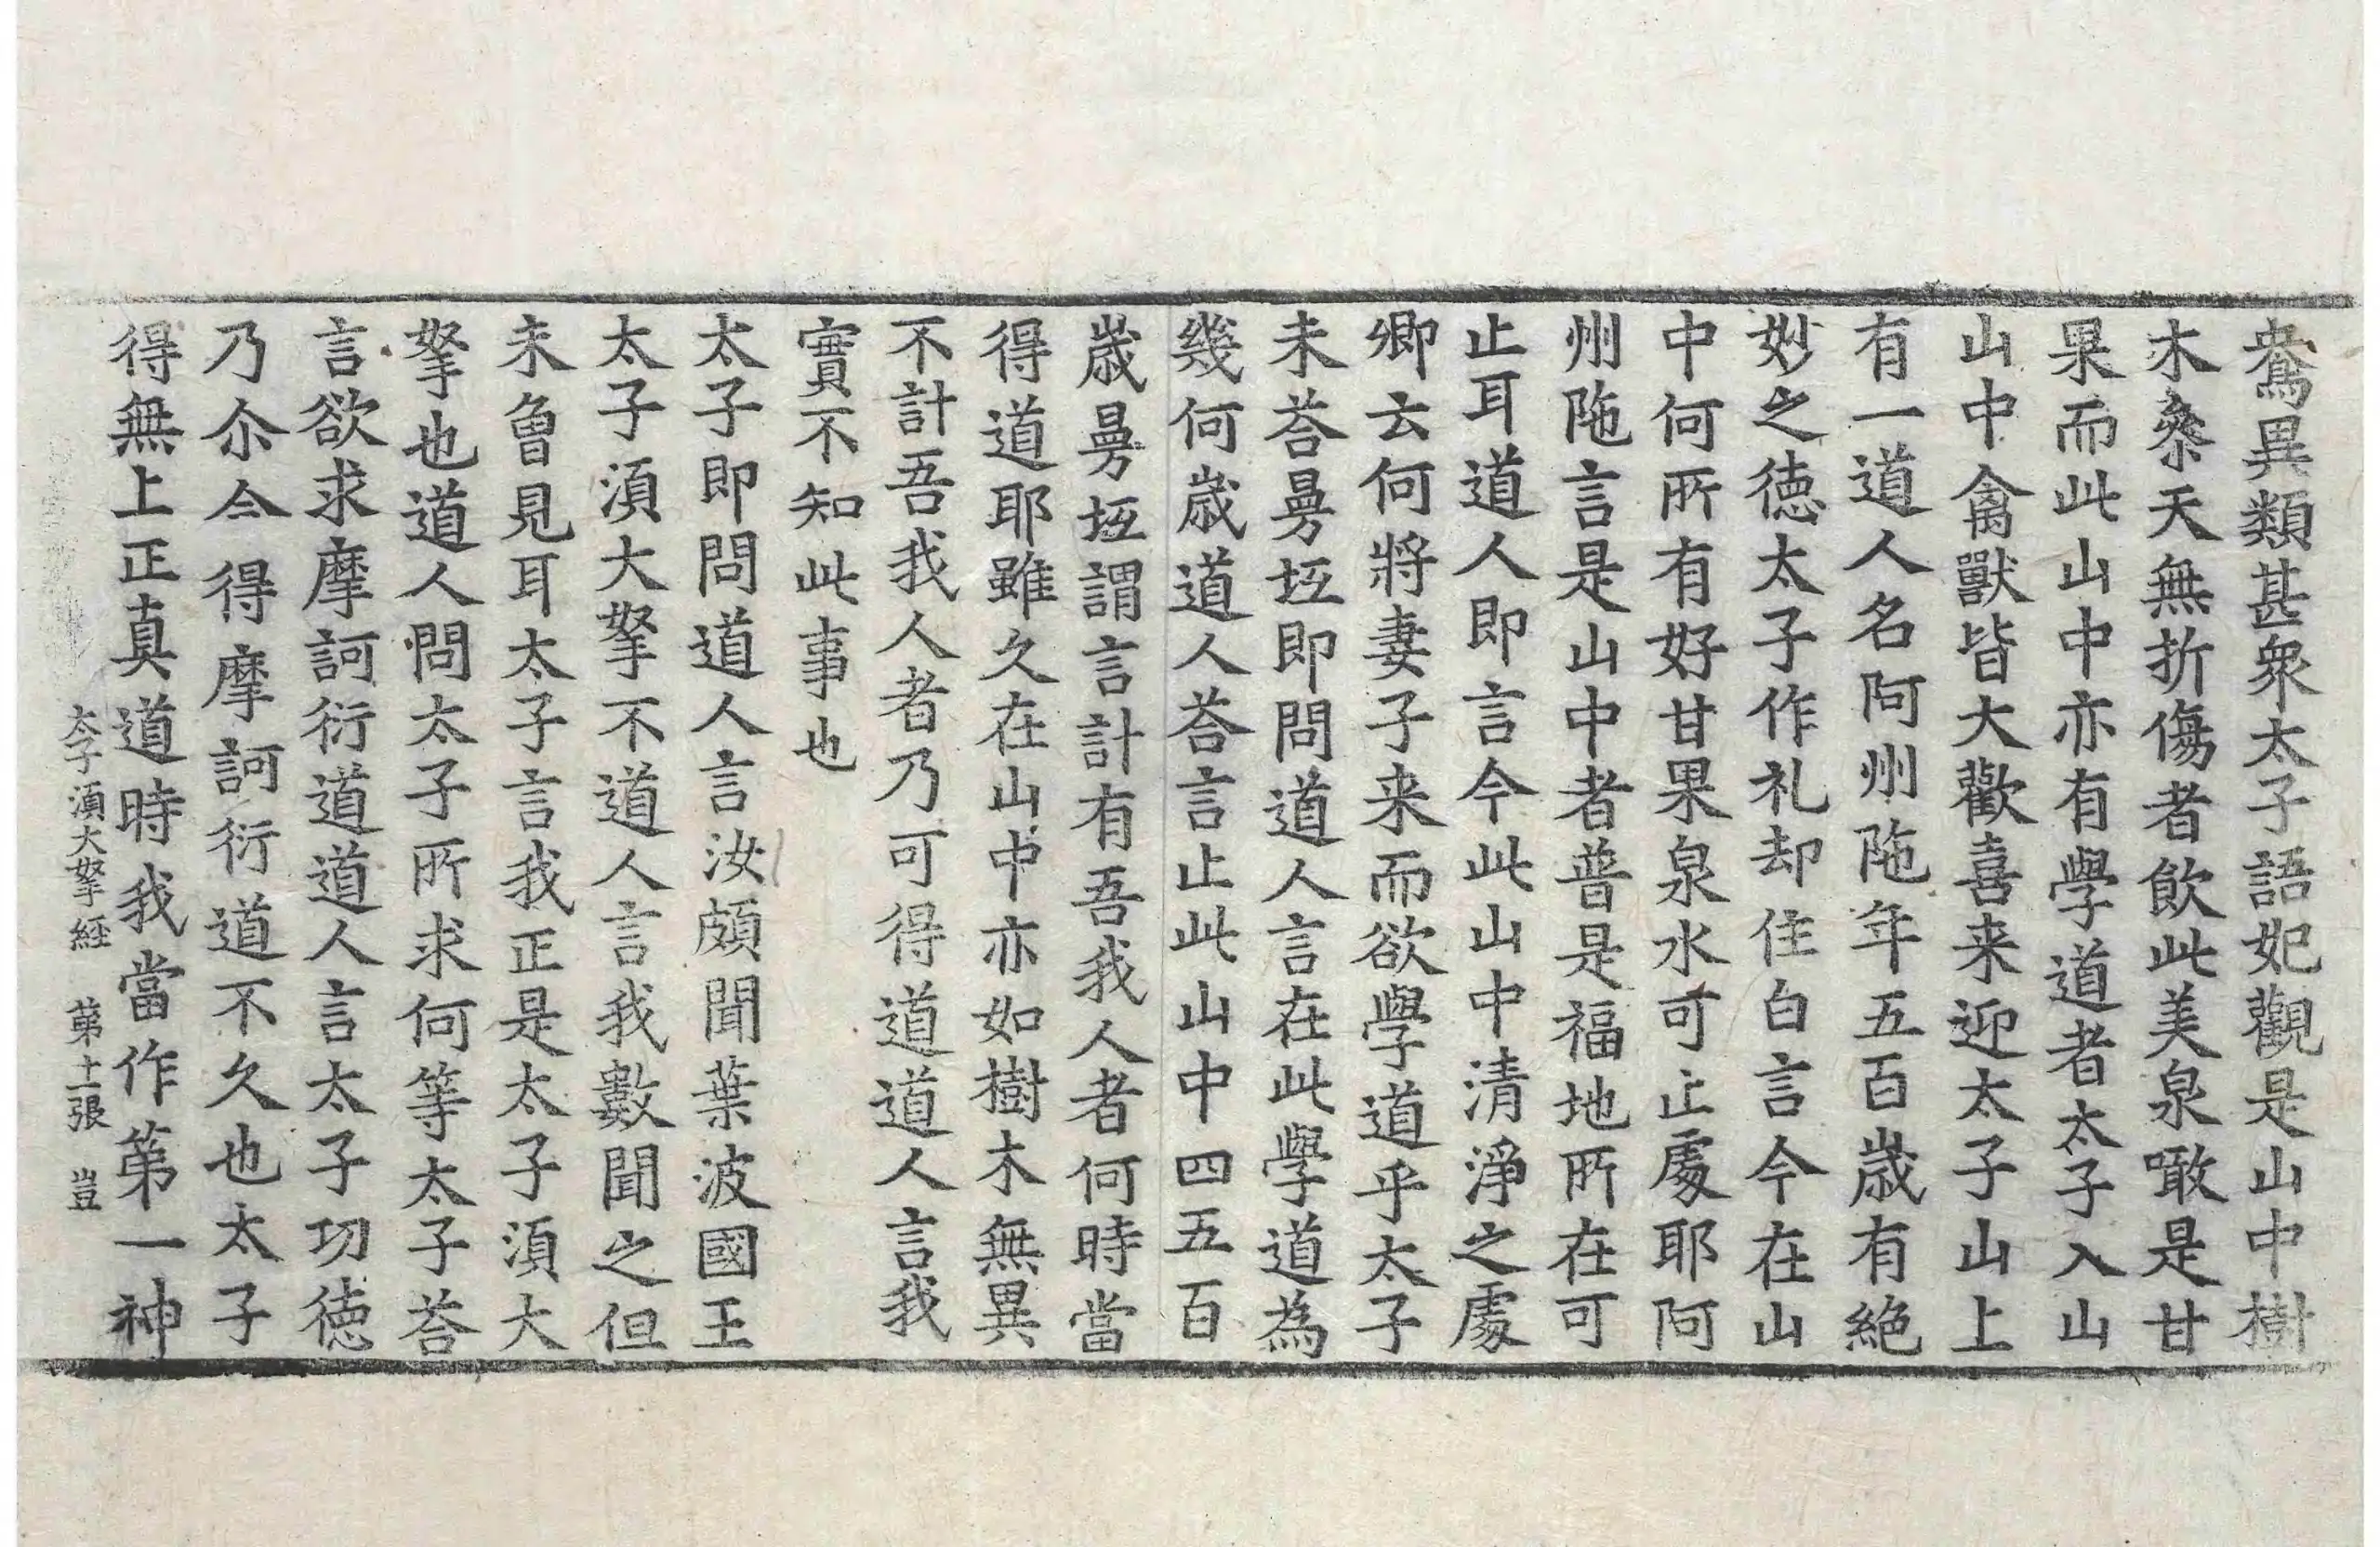 鴦異類甚衆太子語妃觀是山中樹
木叅天無折傷者飲此美泉噉是甘
果而此山中亦有學道者太子入山
山中禽獸皆大歡喜来迎太子山上
有一道人名阿州陁年五百歳有絶
妙之徳太子作礼却住白言今在山
中何所有好甘果泉水可止處耶阿
州陁言是山中者普是福地所在可
止耳道人即言今此山中清淨之處
卿云何將妻子来而欲學道乎太子
未荅曼坻即問道人言在此學道為
幾何歳道人荅言止此山中四五百
歳曼坻謂言計有吾我人者何時當
得道耶雖久在山中亦如樹木無異
不計吾我人者乃可得道道人言我
實不知此事也
太子即問道人言汝頗聞葉波國王
太子湏大拏不道人言我數聞之但
未曾見耳太子言我正是太子湏大
拏也道人問太子所求何等太子荅
言欲求摩訶衍道道人言太子功徳
乃尒今得摩訶衍道不久也太子
得無上正真道時我當作第一神
太子湏大拏経 第十一張 豈